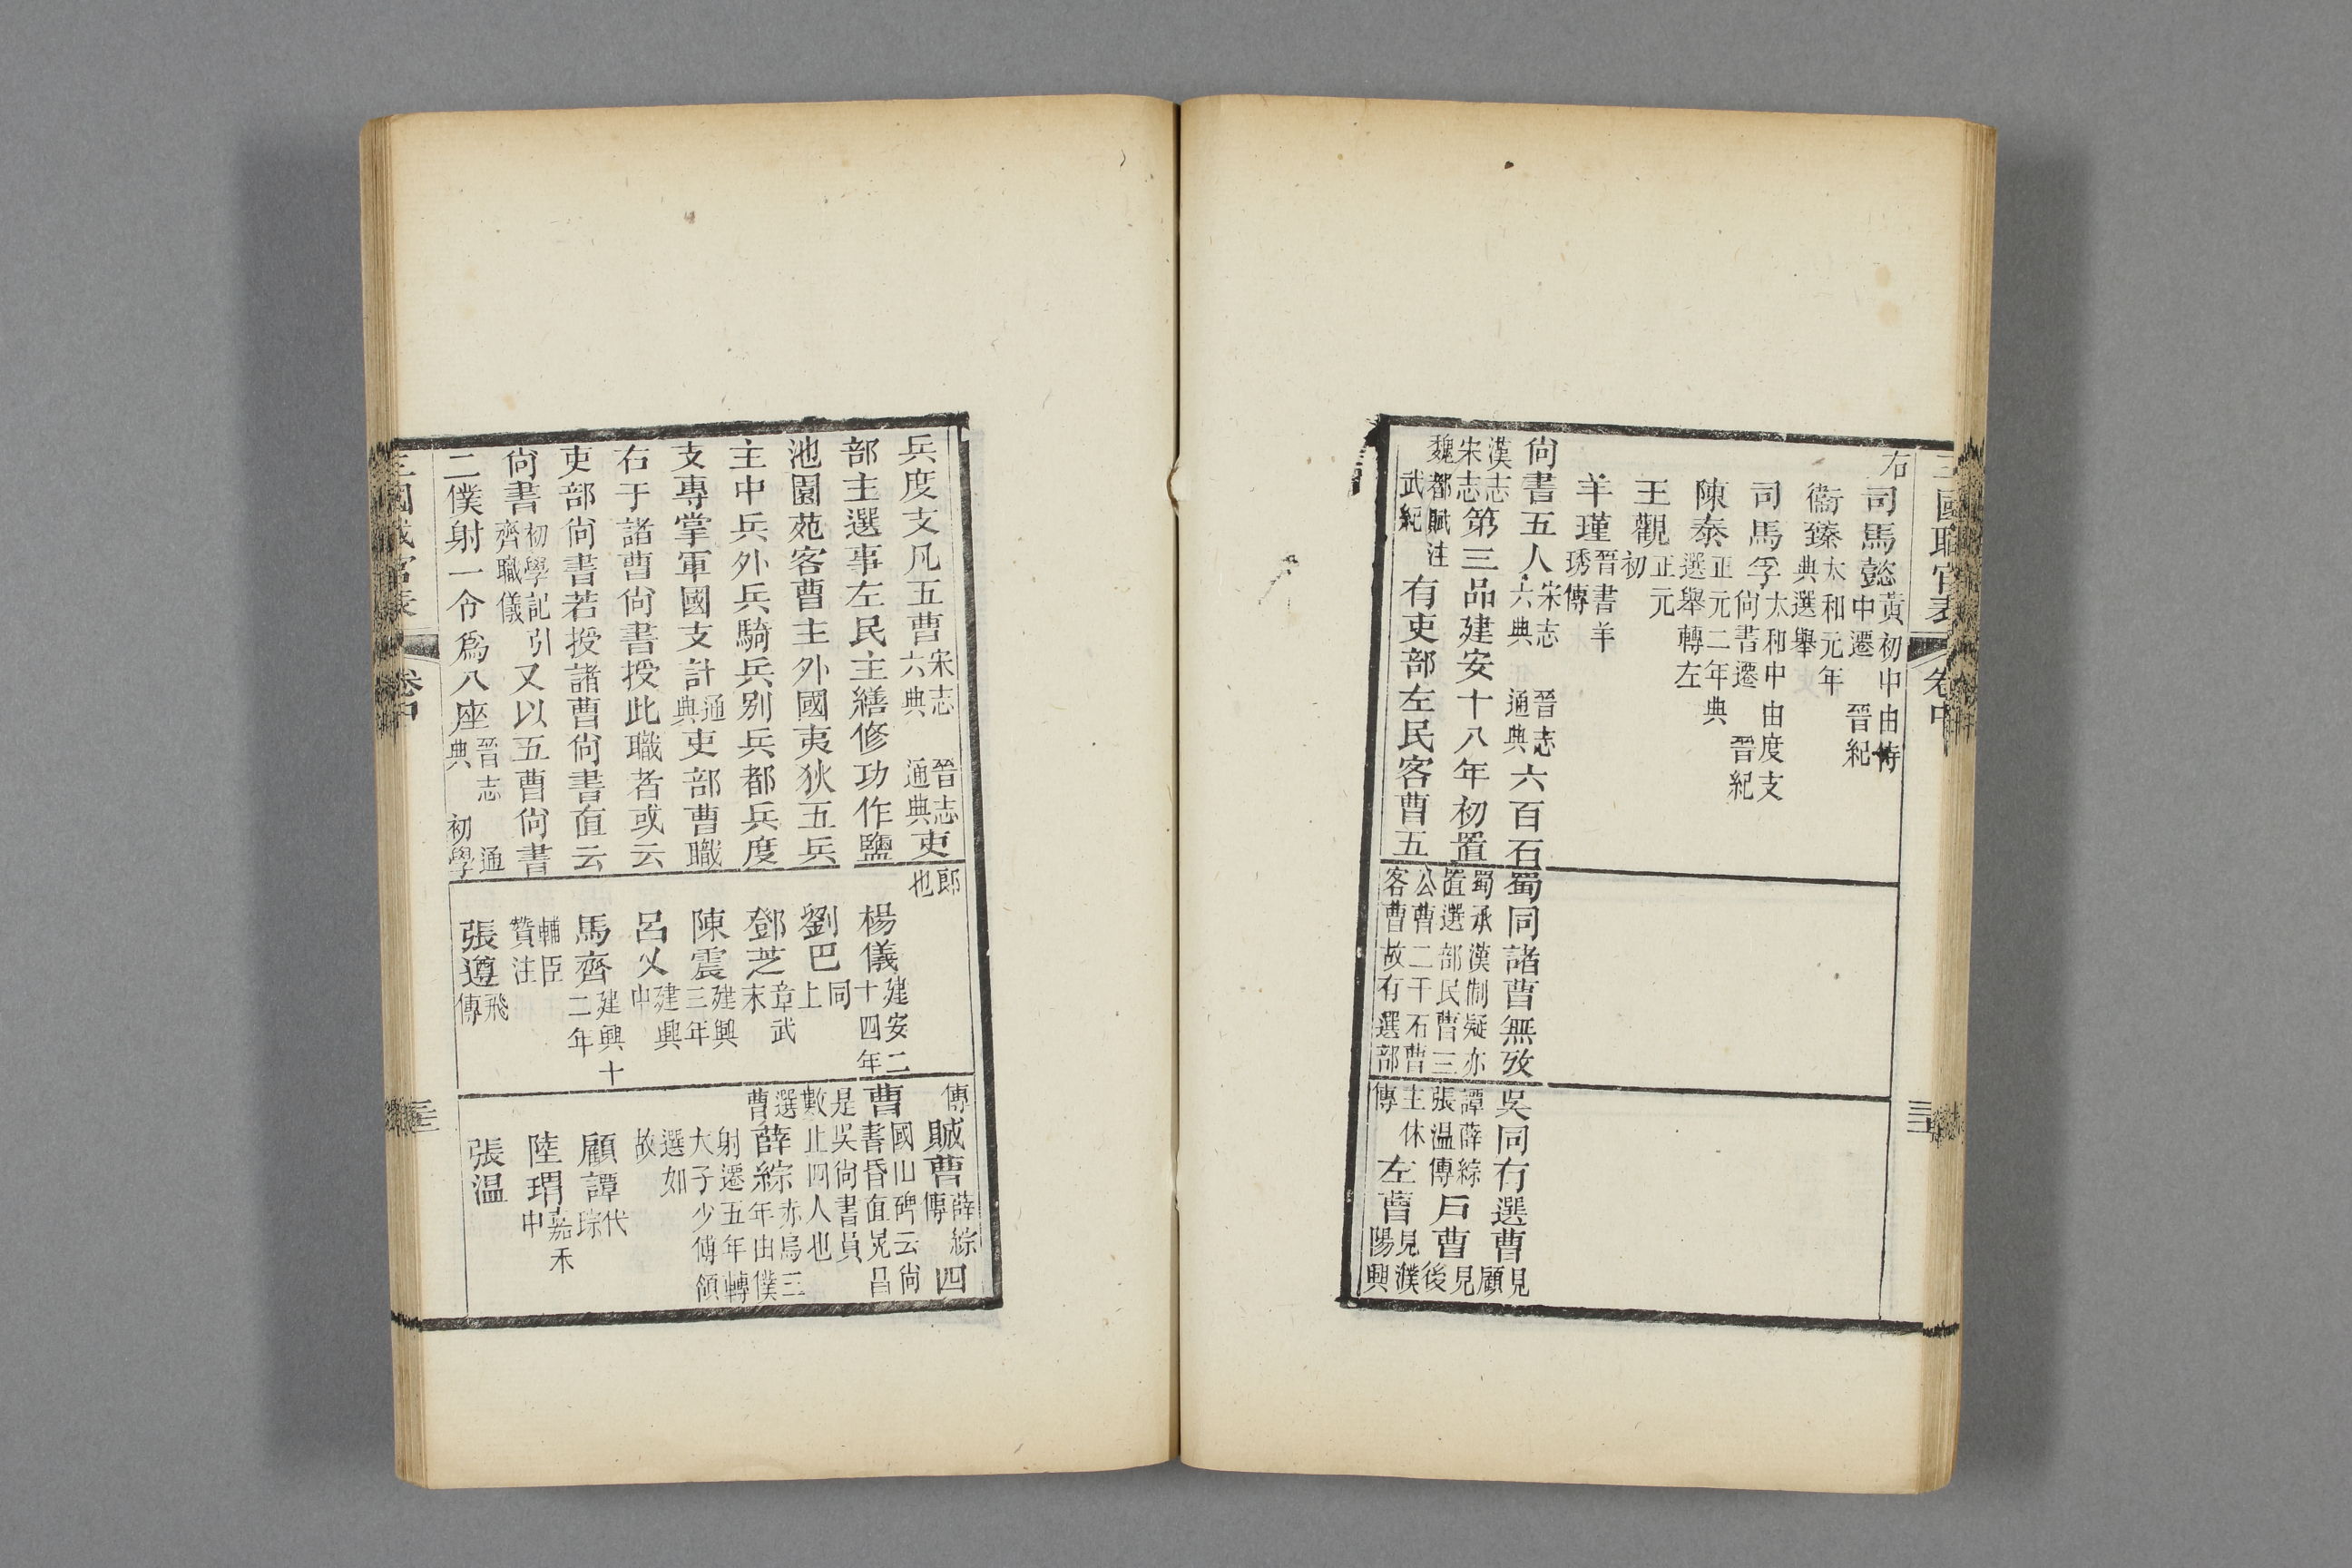 三國職官表 卷中
右
司馬懿 黃初中由侍中遷 晉紀
衞臻 太和元年典選舉
司馬孚 太和中由度支尙書遷 晉紀
陳泰 正元二年典選舉轉左
王觀 正元初
羊瑾 晉書羊琇傳
尙書五人 宋志六典 晉志通典 六百石
漢志宋志 第三品建安十八年初置
魏都賦注武紀 有吏部左民客曹五
蜀同諸曹無攷
蜀承漢制疑亦置選部民曹三
公曹二千石曹客曹故有選部
吳同有選曹 見顧
譚薛綜張温傳 戶曹 見後
主休傳 左曹 見濮陽興
兵度支凡五曹 宋志六典 晉志通典 吏
部主選事左民主繕修功作鹽
池園苑客曹主外國夷狄五兵
主中兵外兵騎兵别兵都兵度
支專掌軍國支計 通典 吏部曹職
右于諸曹尙書授此職者或云
吏部尙書若授諸曹尙書直云
尙書 初學記引齊職儀 又以五曹尙書
二僕射一令爲八座 晉志 通典 初學
郎也
楊儀 建安二十四年
劉巴 同上
鄧芝 章武末
陳震 建興三年
呂乂 建興中
馬齊 建興十二年
輔臣贊注
張遵 飛傳
傳 賊曹 薛綜傳 四
曹 國山碑云尙書昏直晃昌
是吳尙書員數止四人也
選曹 薛綜 赤烏三年由僕
射遷五年轉太子少傅領
選如故
顧譚 代琮
陸瑁 嘉禾中
張温
三國職官表 卷中